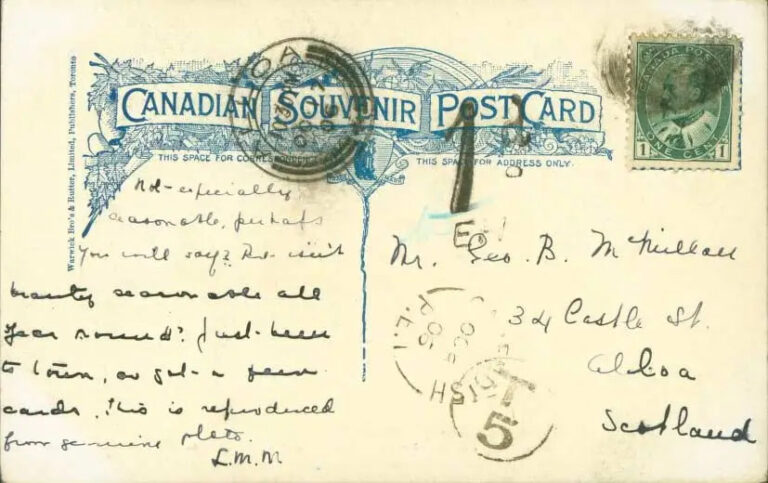 CANADIAN SOUVENIR POST CARD
THIS SPACE FOR CORRESPONDENCE
THIS SPACE FOR ADDRESS ONLY.
Warwick Bro's & Rutter, Limited, Publishers, Toronto
CANADA POSTAGE
ONE CENT
1 1
ALLOA
Not especially
seasonable, perhaps
you will say? But isn't
beauty seasonable all
year round? Just been
to town, and got a few
cards. This is reproduced
from genuine photo.
L.M.M
Mr. Geo. B. McMillan
32 Castle St.
Alloa
Scotland
P.E.I
OC
06
T
5